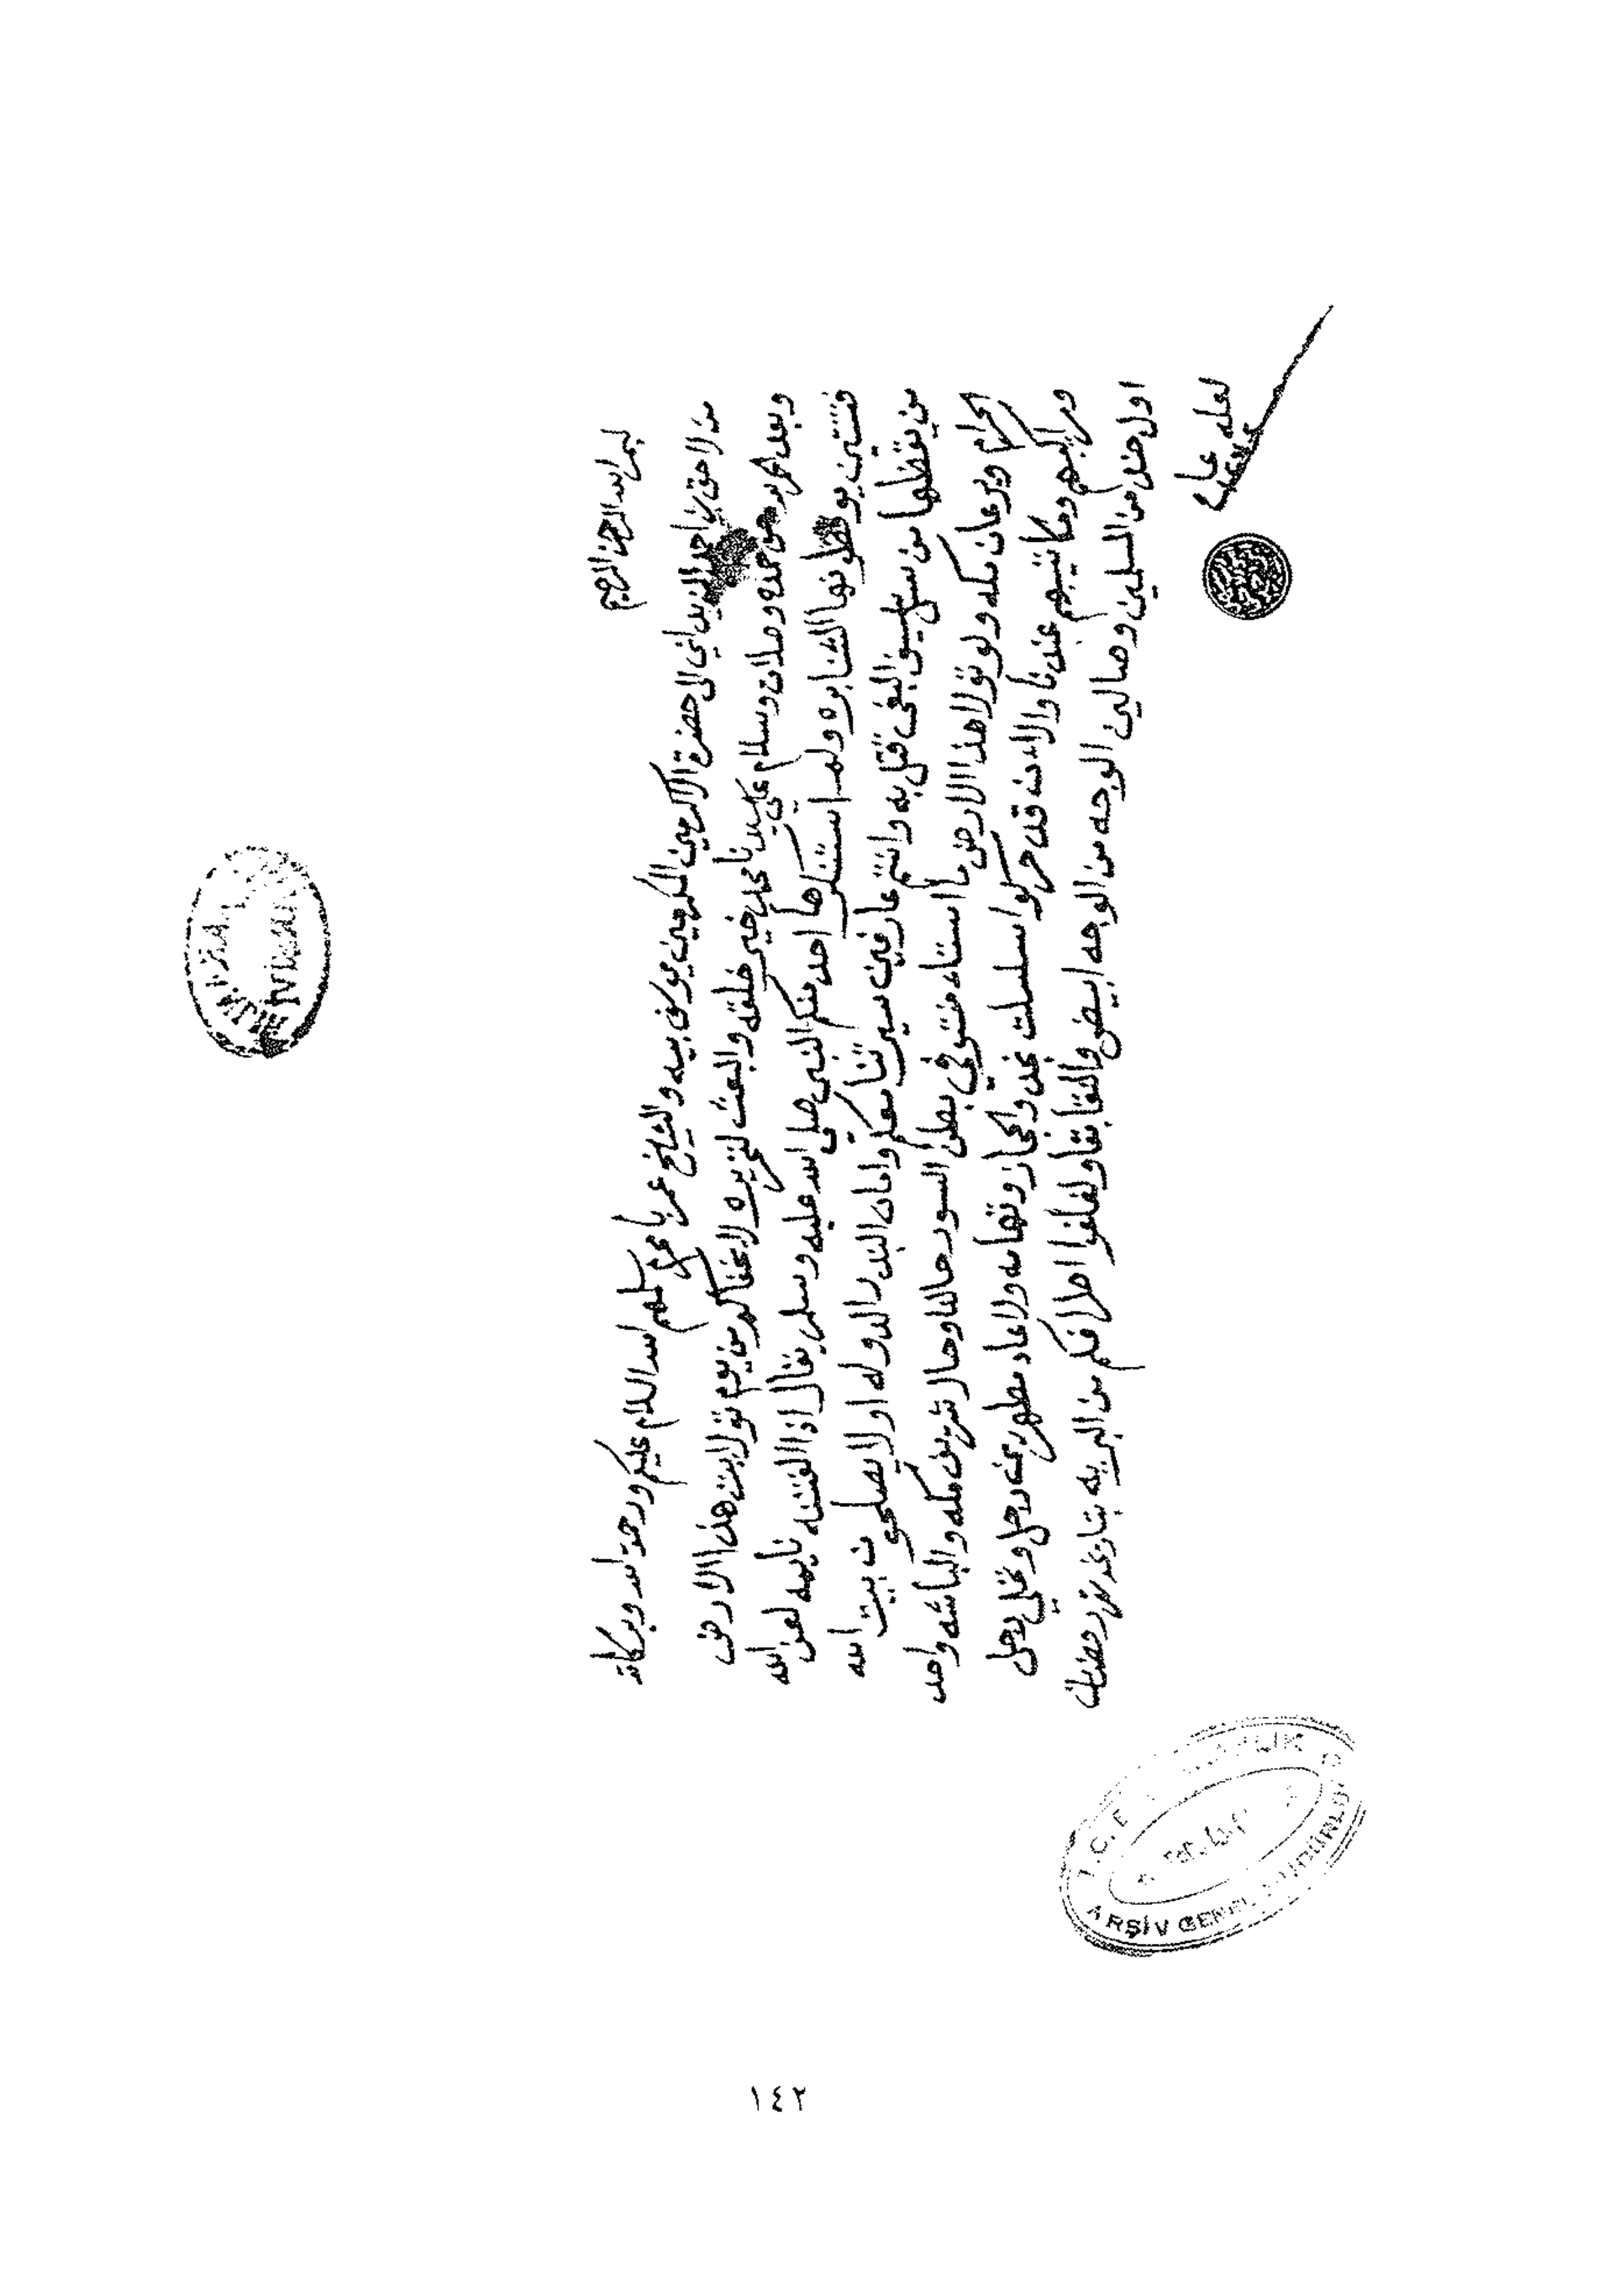 بسم الله الرحمن الرحيم
من لاحق بن احمد الزيداني الى حضرة الاكرمين المكرمين يوسف بيه والشيخ عمر با سلمهم الله السلام عليكم ورحمة الله وبركاته
وبعد الحمد لله حق حمده وصلات وسلام على سيدنا محمد خير خلقه والبعث لتحريره لا يخفاكم من يوم تولابت هذا الارض
فتنتين يوقظونها ولم استنكرها احد منكم النبي صلى الله عليه وسلم يقال اذا الفتنه نايمه لعن الله
من يقظها من سل سيف البغي قتل به وانتم عارفين سيرتنا معكم وامان البندر الدوله اولا يصلحون بيت الله
الحرام ويرعان مكه ولو تولا هذا الارض ما استاء منتو في بطن السود حالنا وحال شريف مكه والباشه واحد
ومراكبهم ومكاتيبهم عندنا والاءن قد حركوا سلسلت نجد والحجاز وتهامه ولا عاد مطهر يمن دخل وخلي دخل
اول دخل من المسلمين وصالين الوجه من الوجه ابيض والنقا بقا ولفلفوا اطرافكم من البريه بتاريخه رمضان
لعله عا
١٤٢
T.C.
ARŞİV GENEL MÜDÜRLÜĞÜ